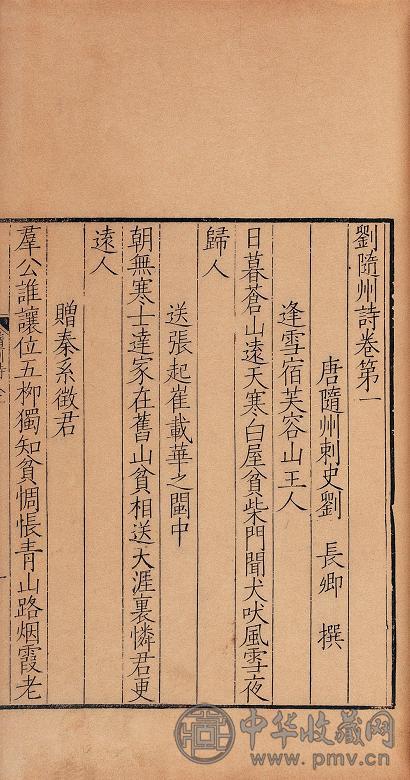 劉隨州詩卷第一
唐隨州刺史劉 長卿 撰
逢雪宿芙容山王人
日暮蒼山遠天寒白屋貧柴門聞犬吠風雪夜
歸人
送張起崔載華之閩中
朝無寒士達家在舊山貧相送天涯裏憐君更
遠人
贈秦系徵君
羣公誰讓位五柳獨知貧惆悵青山路烟霞老
中华收藏网
www.pmv.cn